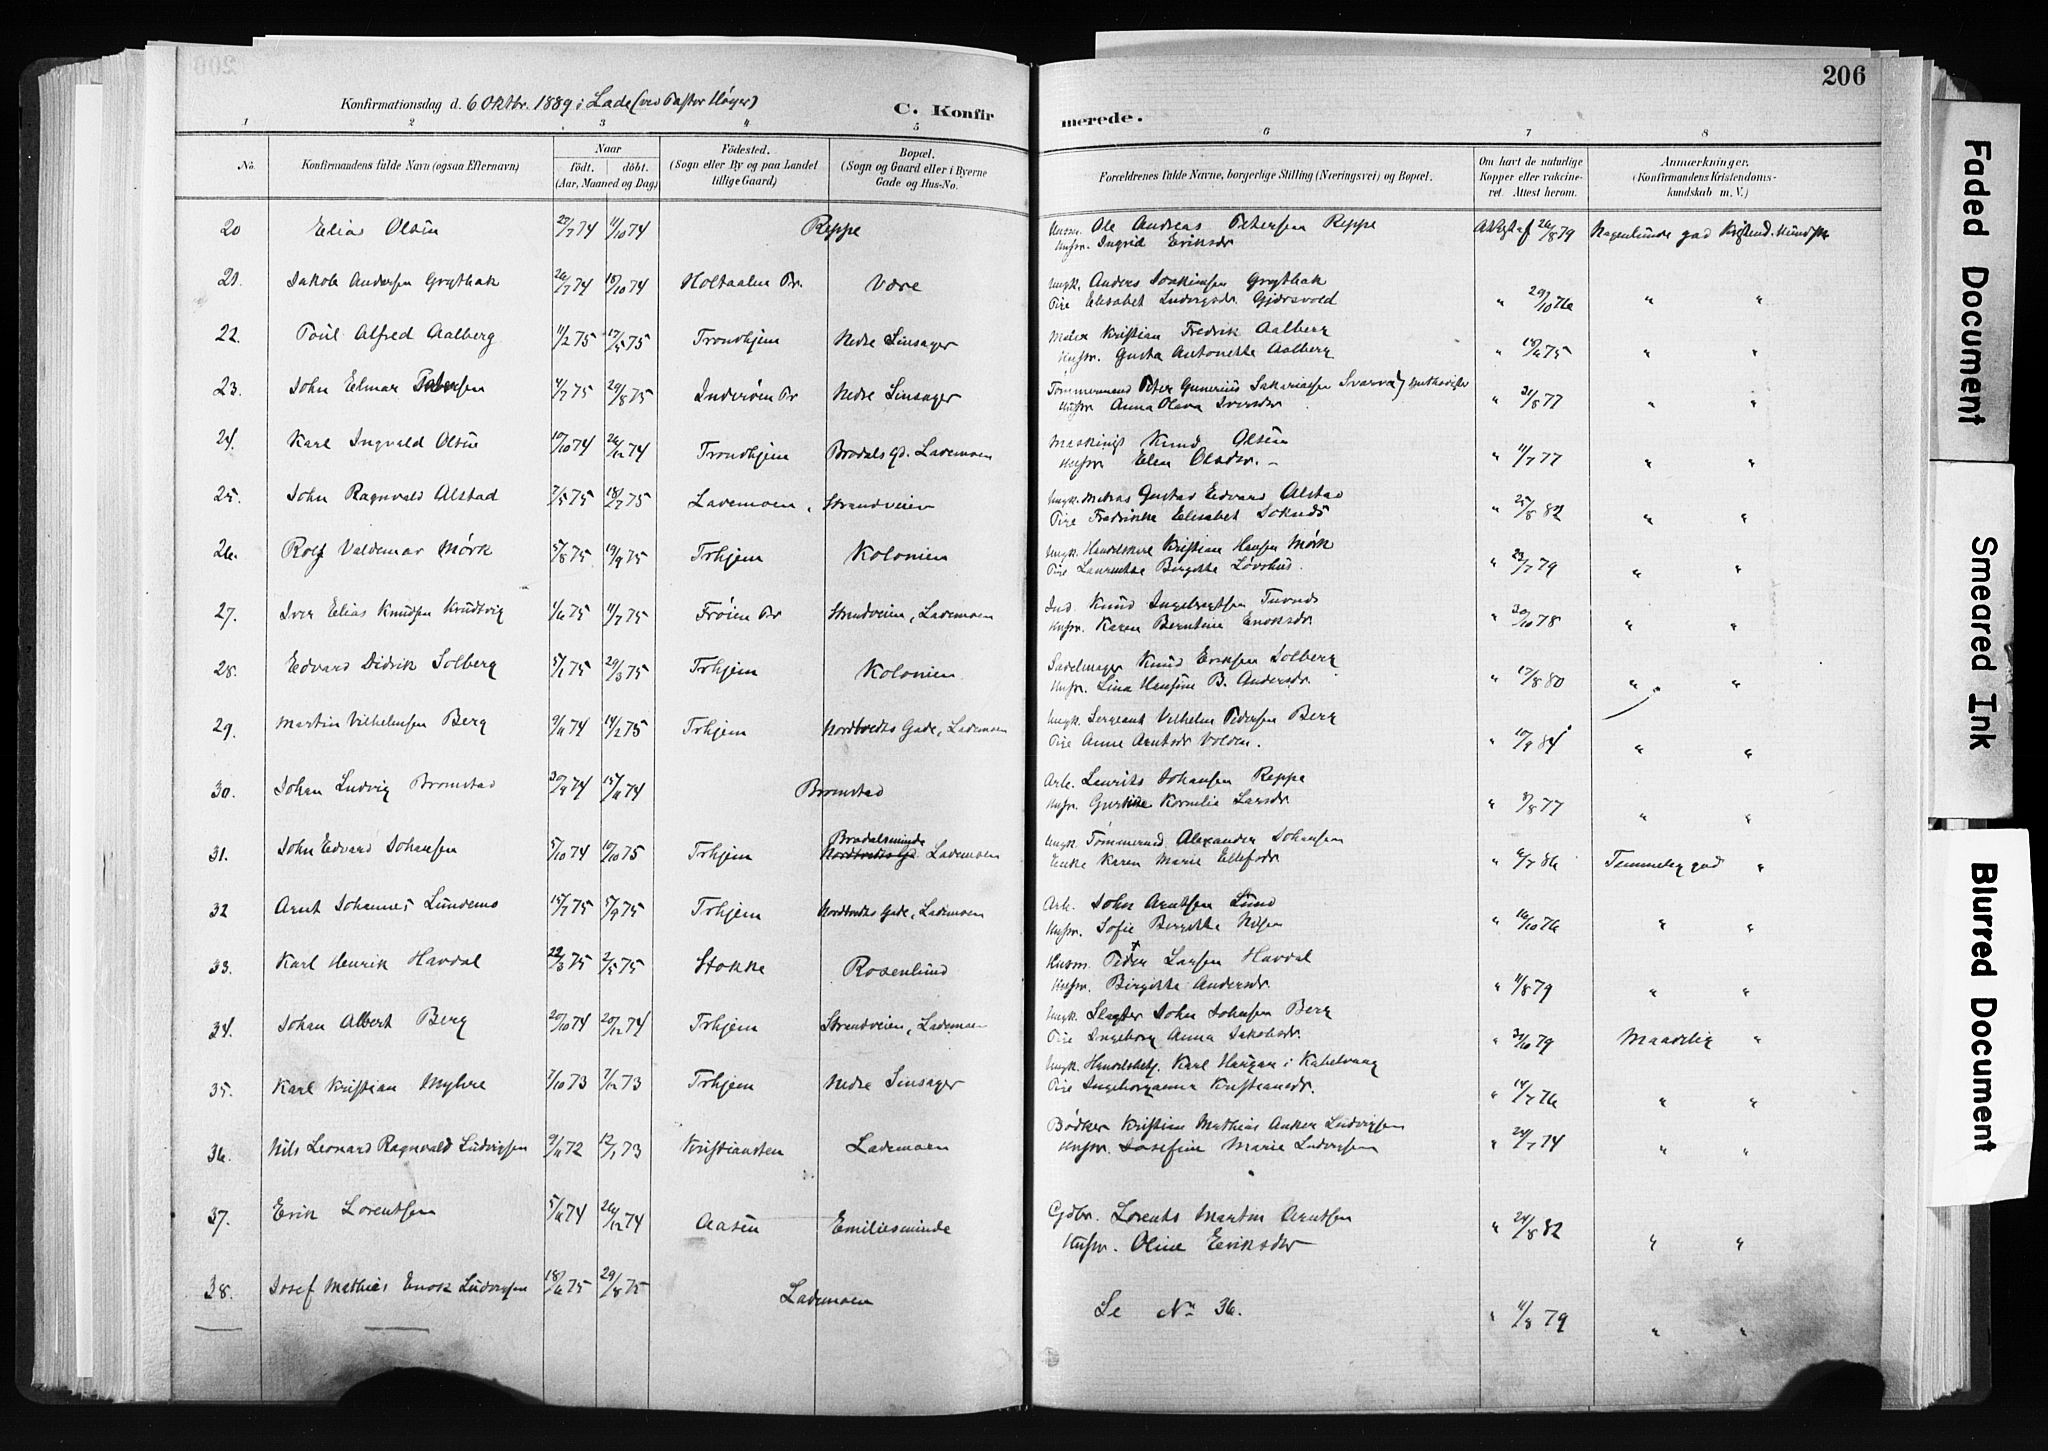 206
Konfirmationsdag d. 6 Oktbr. 1889 i Lade (ved Pastor Høyer)
C. Konfirmerede.
1 2 3 4 5 6 7 8
No. Konfirmandens fulde Navn (ogsaa Efternavn) Naar födt. döbt. (Aar, Maaned og Dag) Födested. (Sogn eller By og paa Landet tillige Gaard) Bopæl. (Sogn og Gaard eller i Byerne Gade og Hus-No. Forældrenes fulde Navne, borgerlige Stilling (Næringsvei) og Bopæl. Om havt de naturlige Kopper eller vakcineret. Attest herom. Anmærkninger. (Konfirmandens Kristendomskundskab m. V.)
20 Elias Olsen 23/7 74 11/10 74 Reppe Husm. Ole Andreas Petersen Reppe
Hustr. Ingrid Eriksdr 26/8 79 god
21. Jakob Andersen Grytbak 26/7 74 18/10 74 Holtaalen Tr. Være Ungk. Anders Joakimsen Grytbak
Pige Elisabet Ludvigsdr. Gjørsvold " 29/10 76 " "
22. Poul Alfred Aalberg 11/2 75 17/5 75 Trondhjem Nedre Linsager Maler Kristian Fredrik Aalberg
Hustr. Gusta Antonette Aalberg " 75 " "
23. John Elmar Petersen 4/7 75 29/8 75 Inderøen Tr Nedre Linsager Tømmermand Peter Gunerius Sakariasen
Hustr Anna Olava Iversdr " 31/8 77 " "
24. Karl Ingvald Olsen 10/10 74 26/12 74 Trondhjem Brodals Gd. Lademoen Maskinist Knud Olsen
Hustr. Elen Olsdr. " 11/7 77 " "
25. John Ragnvald Alstad 7/5 75 18/7 75 Lademoen, Strandveien Ungk. Matros Gustav Edvard Alstad
Pige Fredrikke Elisabet " 25/8 82 " "
26. Rolf Valdemar Mørk 5/8 75 19/9 75 Trhjem Kolonien Ungk. Kristian Hansen Mørk
Pige Laurentse Birgitte Løvehud. " 23/7 79 " "
27. Iver Elias Knudsen Knudtvig 1/6 75 11/7 75 Frøien Tr Strandveien, Lademoen Ind. Knud Ingebrigtsen
Hustr. Karen Berntine Enoksdr. " 30/10 78 " "
28. Edvard Didrik Solberg 5/1 75 29/3 75 Trhjem Kolonien. Sadelmager Knud Eriksen Solberg
Hustr. Lina Hansine B. Andersdr. " 17/8 80 " "
29. Martin Vilhelmsen Berg 9/11 74 14/2 75 Trhjem Nordtvedts Gade, Lademoen Ungk. Sergeant Vilhelm Pedersen Berg
Pige Anne Arntsdr Volden. " 10/9 84 " "
30. Johan Ludvig Bromstad 30/9 74 15/11 74 Bromstad Arb. Laurits Johansen Reppe
Hustr. Kornelia Larsdr. " 8/8 77 " "
31. John Edvard Johansen 5/10 74 10/10 75 Trhjem Brodalsminde
Nordtvedts Gd. Lademoen Ungk Tømmermd Alexander Johansen
Enke Karen Marie Ellefsdr. " 6/7 86 Temmelig god "
32 Arnt Johannes Lundemo 15/7 75 5/9 75 Trhjem Nordtvedts Gade, Lademoen Arb. John Arntsen Lund
Hustr. Sofie Birgitte Nilsen " 16/10 76 " "
33. Karl Henrik Havdal 22/3 75 2/5 75 Stokke Rosenlund Husm. Peder Larsen Havdal
Hustr. Birgitte Andersdr. " 11/8 79 " "
34. Johan Albert Berg 20/10 74 20/12 74 Trhjem Strandveien, Lademoen Ungk. Slagter John Johnsen Berg
Pige Ingeborg Anna Jakobsdr. " 31/10 79 Maadelig "
35. Karl Kristian Myhre 1/10 73 1/12 73 Trhjem Nedre Linsager Ungk. Handelsbetj. Karl Haugan i Kabelvaag
Pige Ingeborganna Kristiansdr. " 14/7 76 " "
36. Nils Leonard Ragnvald Ludvigsen 9/11 72 12/1 73 Kristiansten Lademoen Bødker Kristian Mathias Anker Ludvigsen
Hustr. Josefine Marie Ludvigsen " 24/7 74 " "
37. Erik Lorentsen 5/11 74 26/12 74 Aasen Emiliesminde Gdbr. Lorents Martin Arntsen
Hustr. Oline Eriksdr " 24/8 82 " "
38. Josef Mathias Enok Ludvigsen 18/6 75 29/8 75 Lademoen Se No 36. " 11/8 79 " "
Faded Document
Smeared Ink
Blurred Document